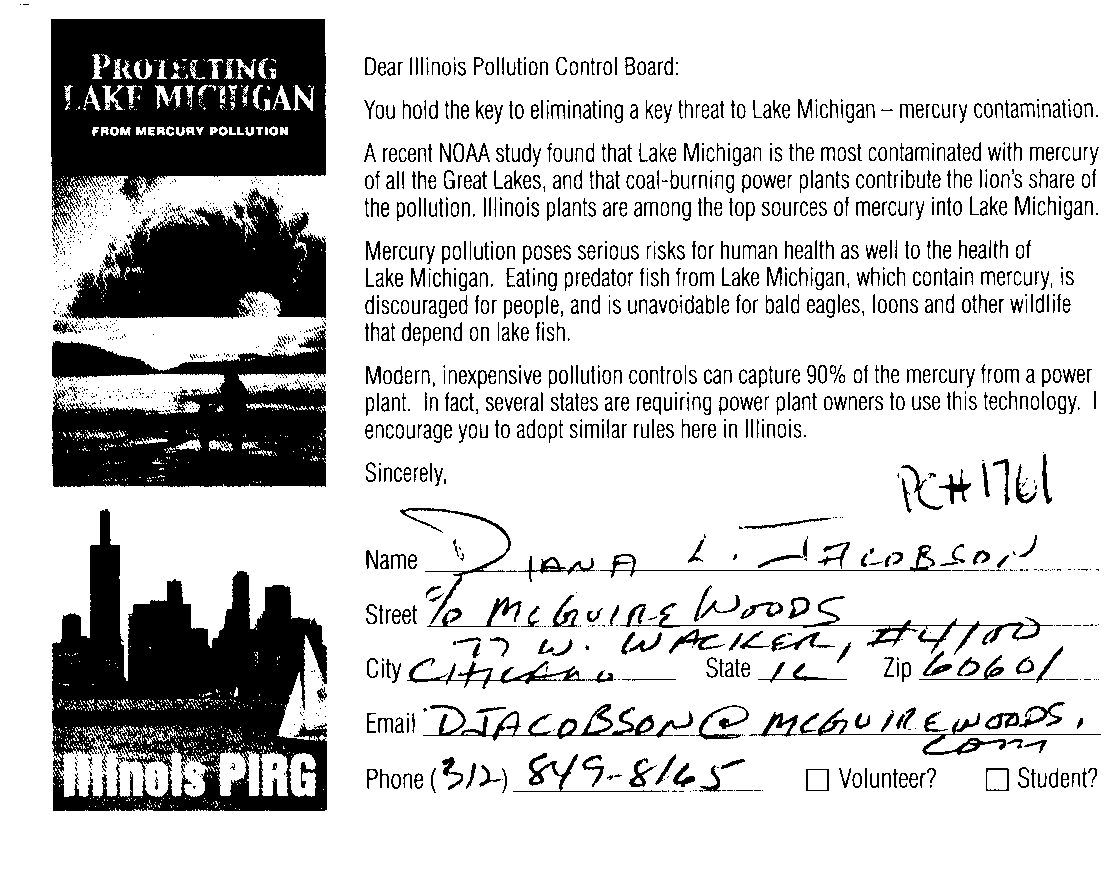 PROTECTING
LAKE MICHIGAN
FROM MERCURY POLLUTION
Illinois PIRG
Dear Illinois Pollution Control Board:
You hold the key to eliminating a key threat to Lake Michigan – mercury contamination.
A recent NOAA study found that Lake Michigan is the most contaminated with mercury
of all the Great Lakes, and that coal-burning power plants contribute the lion's share of
the pollution. Illinois plants are among the top sources of mercury into Lake Michigan.
Mercury pollution poses serious risks for human health as well to the health of
Lake Michigan. Eating predator fish from Lake Michigan, which contain mercury, is
discouraged for people, and is unavoidable for bald eagles, loons and other wildlife
that depend on lake fish.
Modern, inexpensive pollution controls can capture 90% of the mercury from a power
plant. In fact, several states are requiring power plant owners to use this technology. I
encourage you to adopt similar rules here in Illinois.
Sincerely,
PC#1761
Name DIANA L. JACOBSON
Street c/o McGUIRE WOODS
77 W. WACKER, #4100
City CHICAGO State IL Zip 60601
Email DJACOBSON@MCGUIREWOODS.
com
Phone (312) 849-8165 Volunteer? Student?